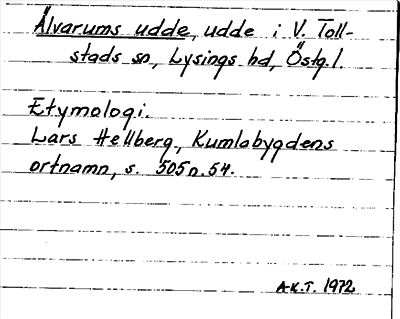 Älvarums udde, udde i V. Toll-
stads sn, Lysings hd, Östg.l.
Etymologi.
Lars Hellberg, Kumlabygdens
ortnamn, s. 505 n. 54.
A.K.T. 1972